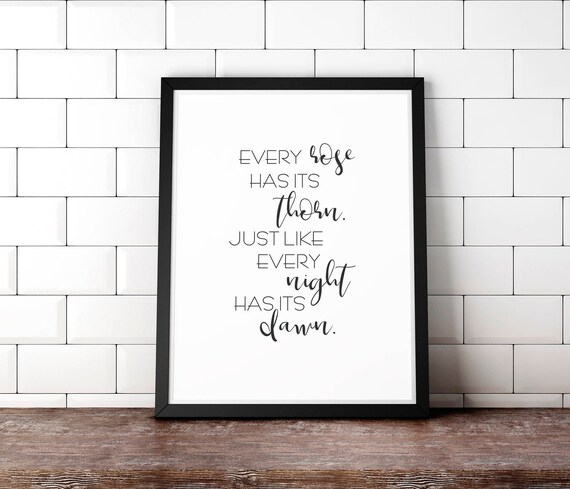 EVERY rose
HAS ITS
thorn.
JUST LIKE
EVERY
night
HAS ITS
dawn.